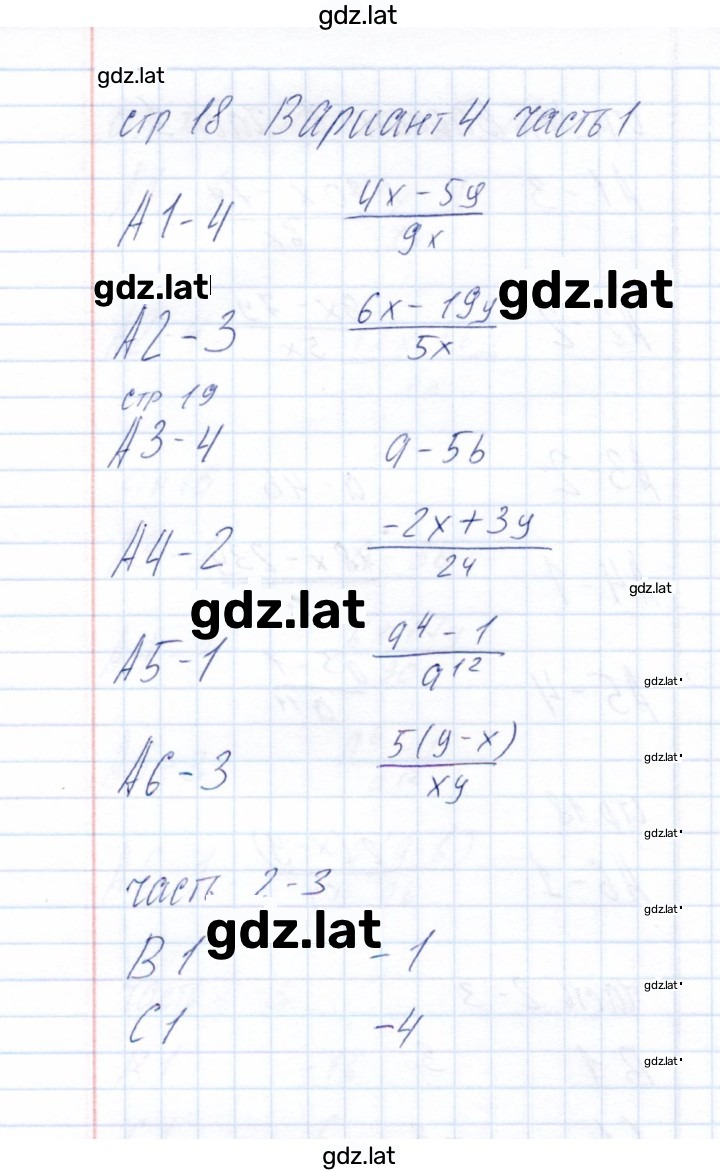 gdz.lat
gdz.lat
стр 18 Вариант 4 часть 1
А1-4 (4x-5y)/(9x)
gdz.lat
А2-3 (6x-19y)/(5x) gdz.lat
стр 19
А3-4 a-5b
А4-2 (-2x+3y)/24
gdz.lat
gdz.lat
А5-1 (a⁴-1)/a¹²
gdz.lat
А6-3 5(y-x)/(xy)
gdz.lat
gdz.lat
часть 2-3
gdz.lat
gdz.lat
В1 -1
gdz.lat
С1 -4
gdz.lat
gdz.lat